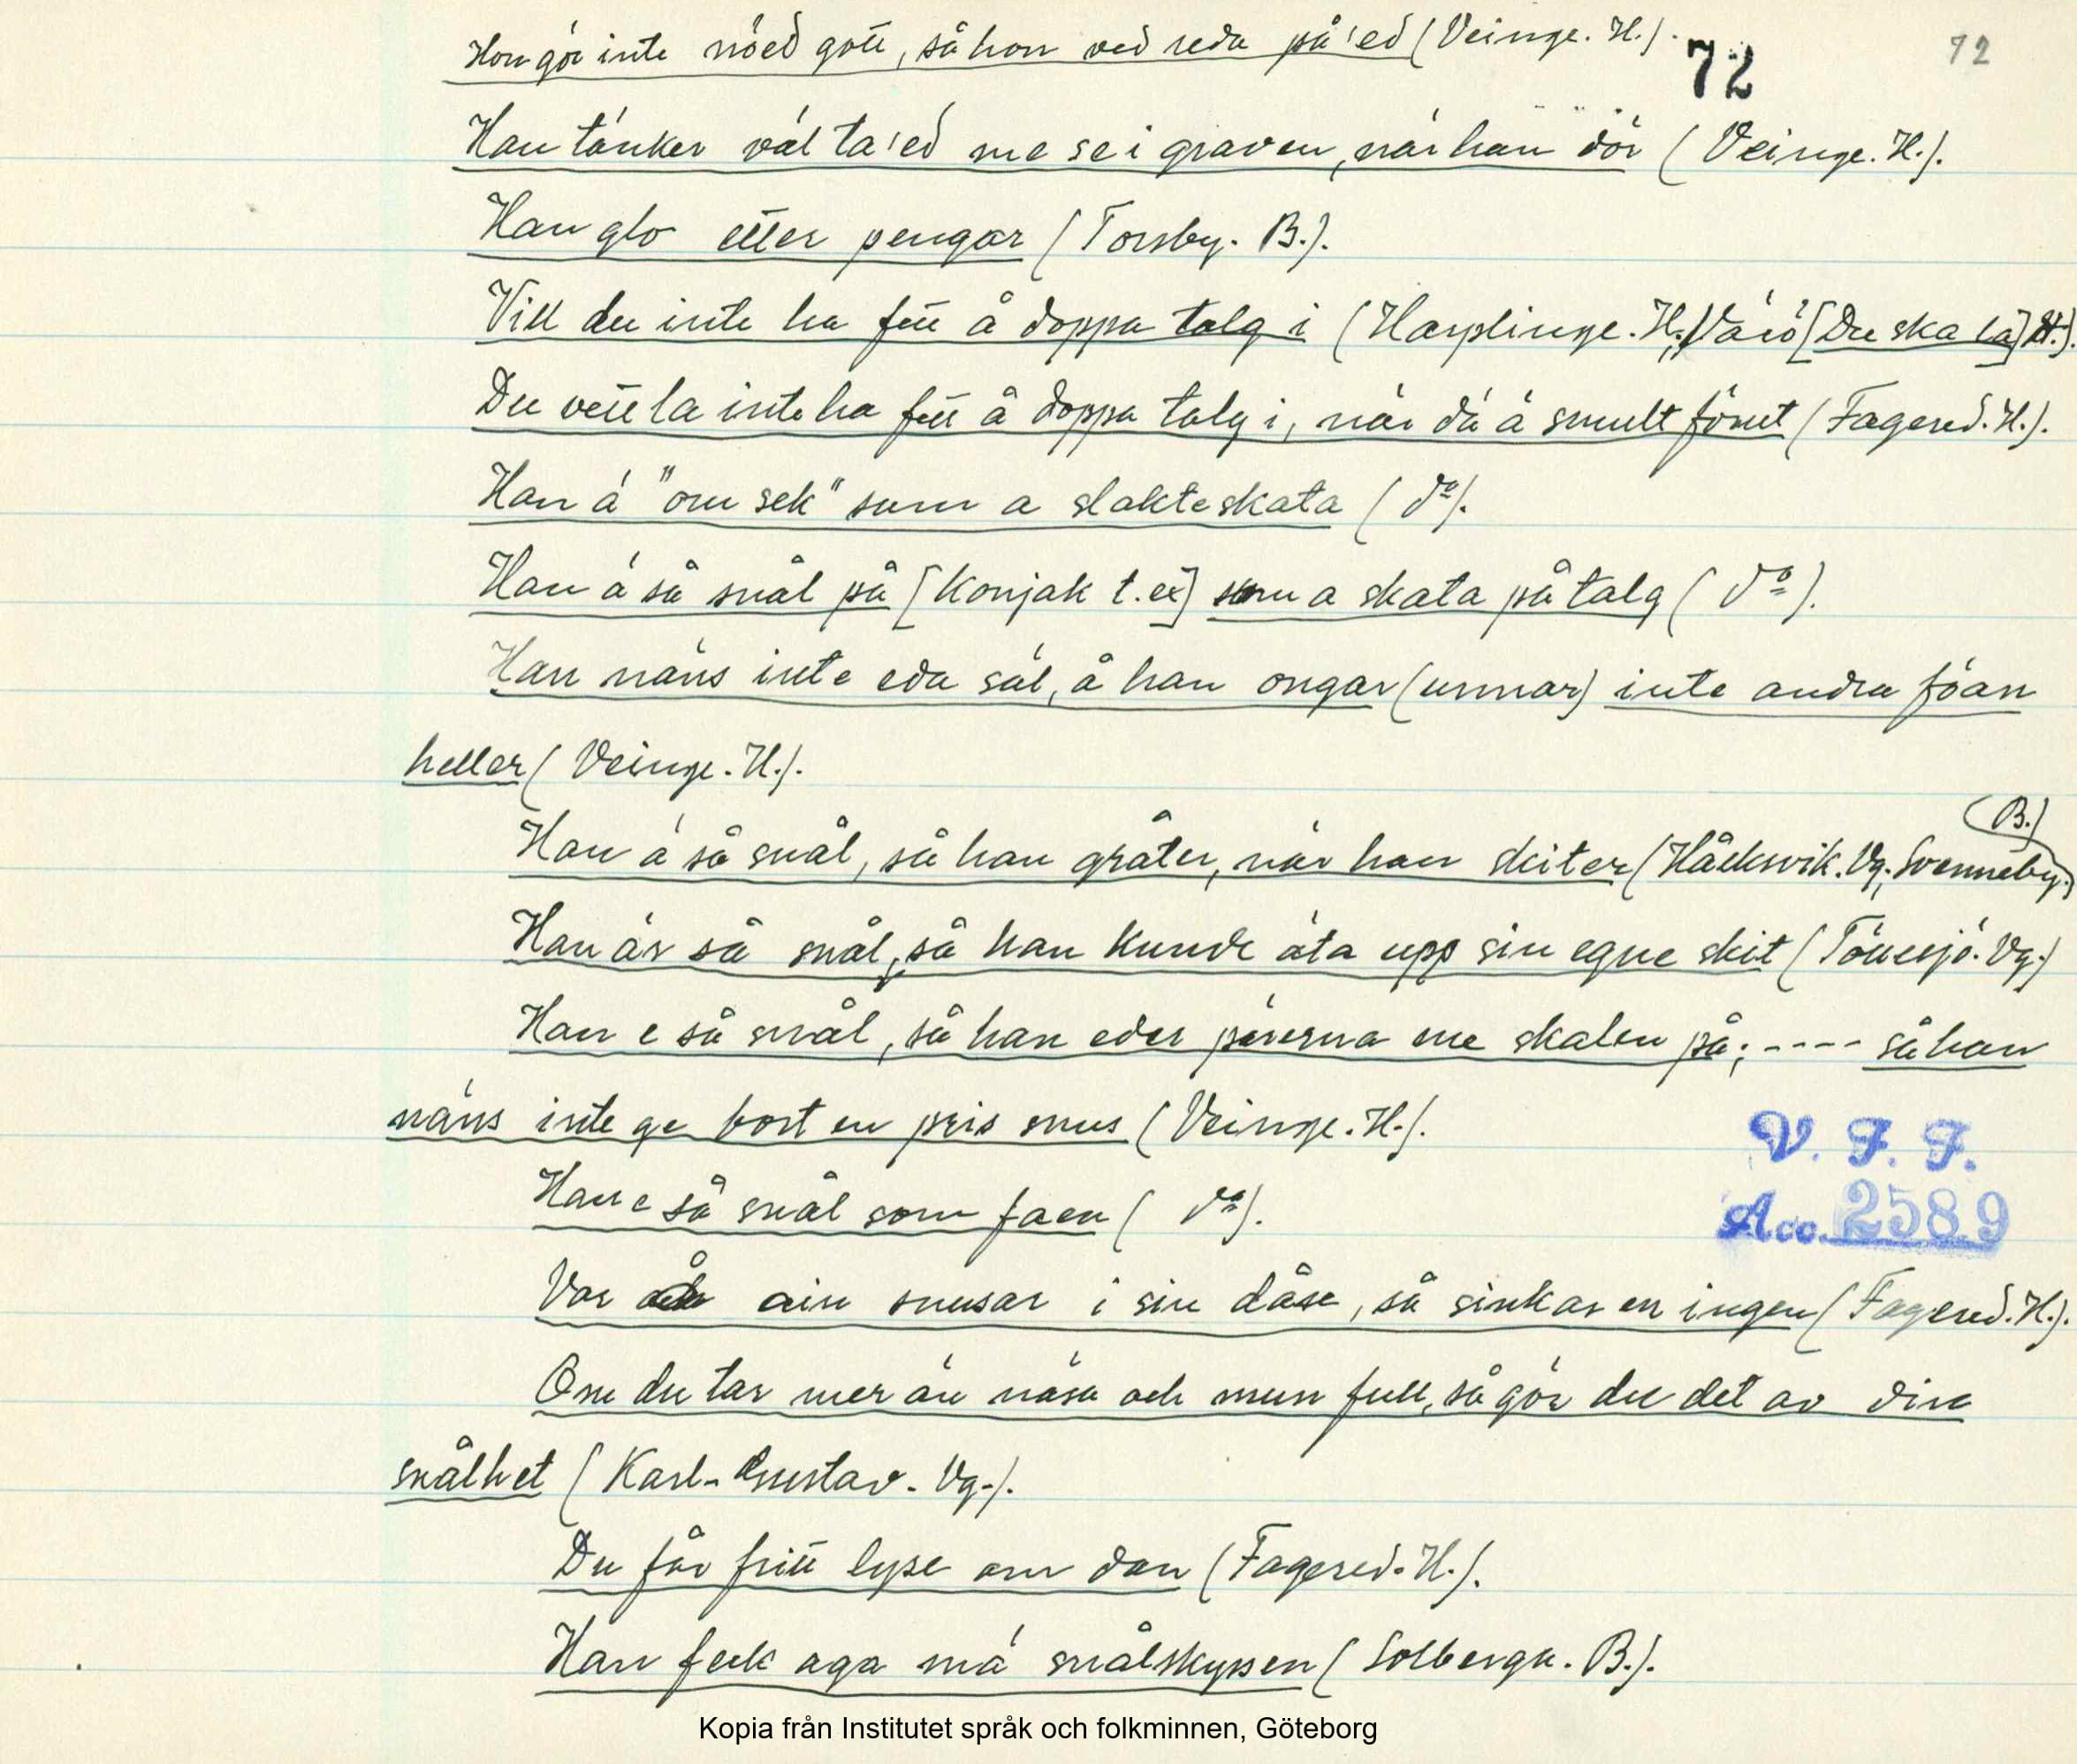 Hon gör inte nöed gott, så hon ved reda på'ed (Veinge. H.).
72
72
Han tänker väl ta'ed me se i graven, när han dör (Veinge. H.).
Han glo etter pengar (Torsby. B.).
Vill du inte ha fett å doppa talg i (Harplinge. H.; Värö [Du ska la] H.).
Du vell la inte ha fett å doppa talg i, när dä ä smult fönet (Fagered. H.).
Han ä "om sek" sum a slakteskata (do).
Han ä så snål på [Konjak t.ex] som a skata på talg (do).
Han näns inte eda säl, å han ongar (unnar) inte andra föan
heller (Veinge. H.).
(B.)
Han ä så snål, så han gråter, när han skiter (Håcksvik. Vg. Svenneby.)
Han är så snål, så han kunde äta upp sin egne skit (Tönnesjö. Vg.)
Han e så snål, så han eder pärerna me skalen på; ---- så han
näns inte ge bort en pris snus (Veinge. H.).
V. F. F.
Acc. 2589
Han e så snål som faen (do).
Var ain snusar i sin dåse, så sinkar en ingen (Fagered. H.).
Om du tar mer än näsa och mun full, så gör du det av din
snålhet (Karl-Gustav. Vg.).
Du får fritt lyse om dan (Fagered. H.).
Han feck aga mä snålskyssen (Solberga. B.).
Kopia från Institutet språk och folkminnen, Göteborg